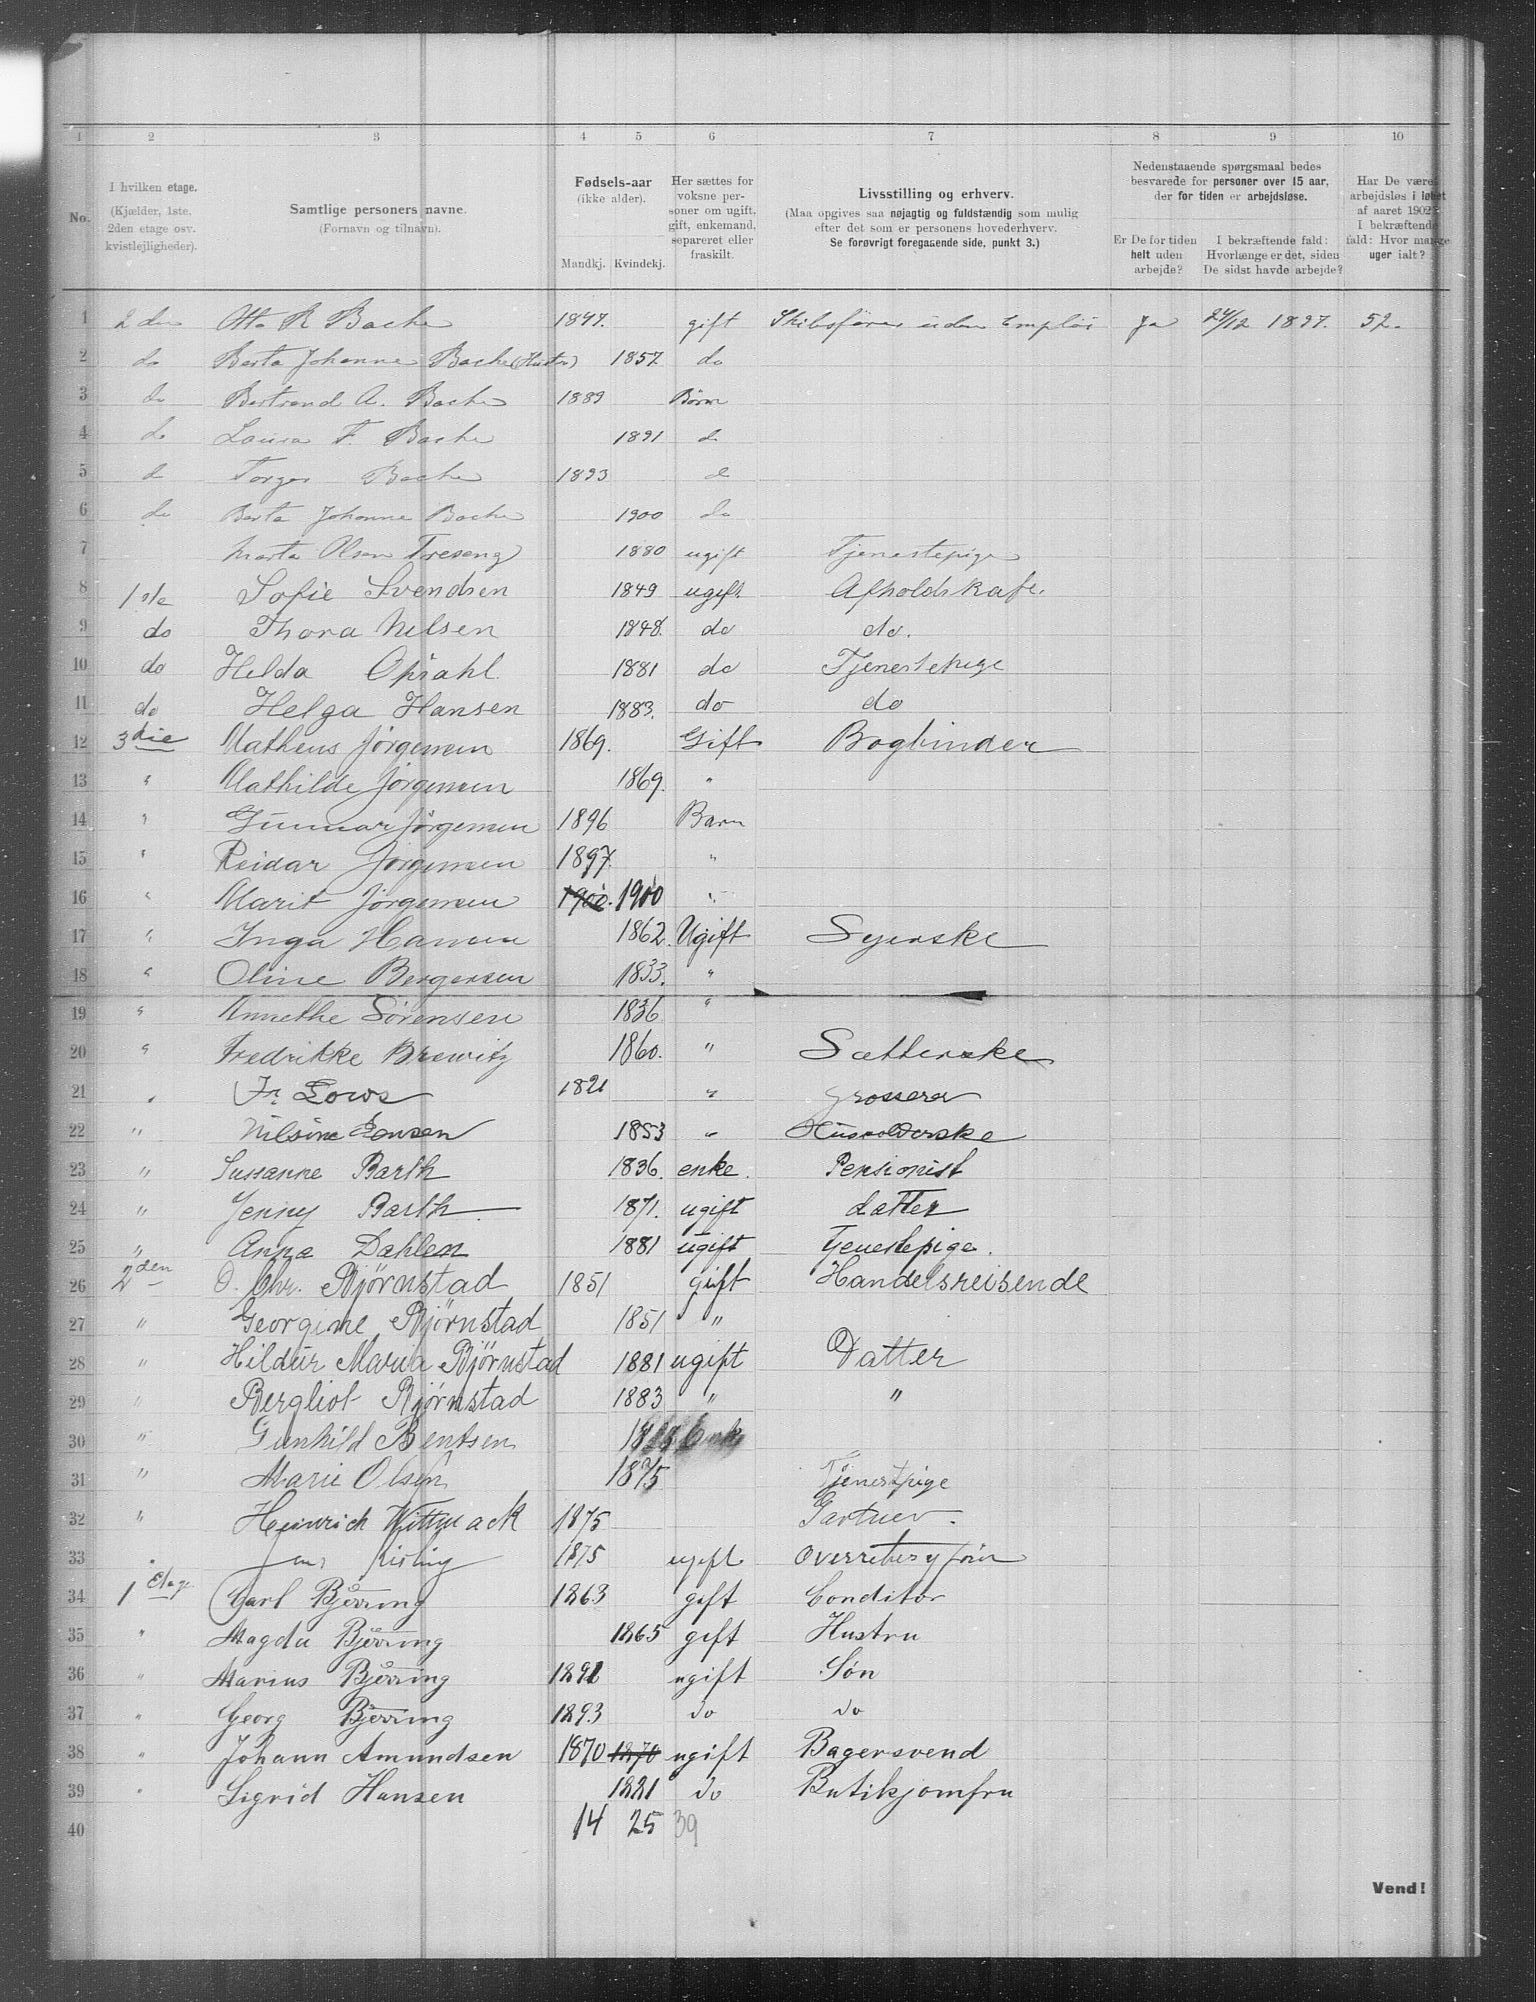 1 2 3 4 5 6 7 8 9 10
No. I hvilken etage. (Kjælder, 1ste, 2den etage osv. kvistlejligheder). Samtlige personers navne. (Fornavn og tilnavn). Fødsels-aar (ikke alder). Mandkj. Kvindekj. Her sættes for voksne personer om ugift, gift, enkemand, separeret eller fraskilt. Livsstilling og erhverv. (Maa opgives saa nøjagtig og fuldstændig som mulig efter det som er personens hovederhverv. Se forøvrigt foregaaende side, punkt 3.) Nedenstaaende spørgsmaal bedes besvarede for personer over 15 aar, der for tiden er arbejdsløse. Er De for tiden helt uden arbejde? I bekræftende fald: Hvorlænge er det, siden De sidst havde arbejde? Har De været arbejdsløs i løbet af aaret 1902? I bekræftende fald: Hvor mange uger ialt?
1 2den Otto R Bache 1847. gift Skibsfører uden Emploi ja 24/12 1897. 52.
2 do Berta Johanne Bache (Hustru) 1857 do
3 do Bertrand A. Bache 1889 Børn
4 do Laura F. Bache 1891 do
5 d Torger Bache 1893 d
6 do Berta Johanne Bache 1900 do
7 Marta Olsen Treseng 1880 ugift Tjenestepige
8 1ste Sofie Svendsen 1849 ugift Afholdskafe.
9 do Thora Nilsen 1848. do do.
10 do Helda Opsahl 1881 do Tjenestepige
11 do Helga Hansen 1883. do do
12 3die Matheus Jørgensen 1869. Gift Bogbinder
13 " Mathilde Jørgensen 1869. "
14 " Gunnar Jørgensen 1896 Barn
15 " Reidar Jørgensen 1897. "
16 " Marit Jørgensen 1900. 1900 "
17 " Inga Hansen 1862. Ugift Syerske
18 " Oline Bergersen 1833. "
19 " Annethe Sørensen 1836 "
20 " Fredrikke Brewitz 1860. " Sætterske
21 " Fr. Lows 1821 " Grosserer
22 " Nilsine Jensen 1853 " Husholderske
23 " Sussanne Barth 1836. enke. Pensionist
24 " Jenny Barth 1871. ugift datter
25 " Anna Dahlen 1881 ugift Tjenestepige.
26 2den O. Chr. Bjørnstad 1851 gift Handelsreisende
27 " Georgine Bjørnstad 1851 "
28 " Hildur Maria Bjørnstad 1881 ugift Datter
29 " Bergliot Bjørnstad 1883 " "
30 " Gunhild Bentsen Enke
31 " Marie Olsen 1875 Tjenestpige
32 " Heinrich Wittmack 1875 Gartner.
33 " Kisling 1875 ugift
34 1 Etage Carl Bjerring 1863 gift Conditor
35 " Magda Bjerring 1865 gift Hustru
36 " Marius Bjerring 1891 ugift Søn
37 " Georg Bjerring 1893 do do
38 " Johann Amundsen 1870 1870 ugift Bagersvend
39 " Sigrid Hansen 1881 do Butikjomfru
40 14 25 39
Vend!